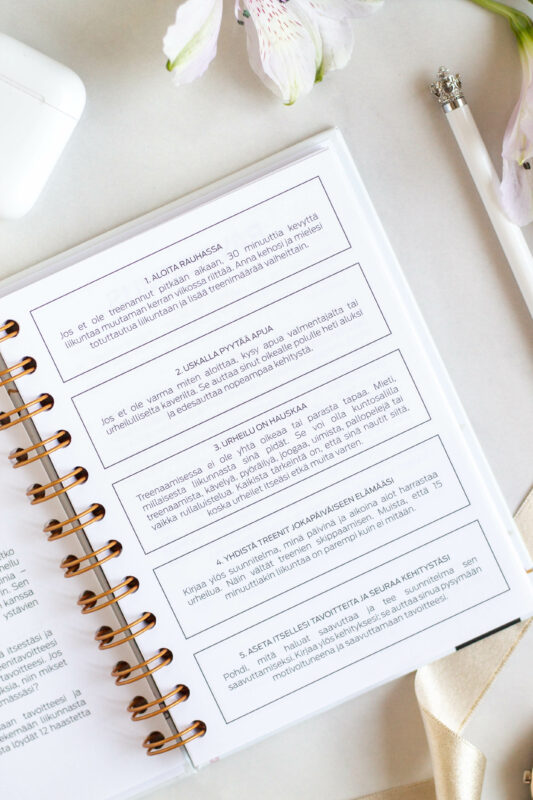 1. ALOITA RAUHASSA
Jos et ole treenannut pitkään aikaan, 30 minuuttia kevyttä
liikuntaa muutaman kerran viikossa riittää. Anna kehosi ja mielesi
totuttautua liikuntaan ja lisää treenimäärää vaiheittain.
2. USKALLA PYYTÄÄ APUA
Jos et ole varma miten aloittaa, kysy apua valmentajalta tai
urheilulliselta kaverilta. Se auttaa sinut oikealle polulle heti aluksi
ja edesauttaa nopeampaa kehitystä.
3. URHEILU ON HAUSKAA
Treenaamisessa ei ole yhtä oikeaa tai parasta tapaa. Mieti,
millaisesta liikunnasta sinä pidät. Se voi olla kuntosalilla
treenaamista, kävelyä, pyöräilyä, joogaa, uimista, pallopelejä tai
vaikka rullaluistelua. Kaikista tärkeintä on, että sinä nautit siitä,
koska urheilet itseäsi etkä muita varten.
4. YHDISTÄ TREENIT JOKAPÄIVÄISEEN ELÄMÄÄSI
Kirjaa ylös suunnitelma, minä päivinä ja aikoina aiot harrastaa
urheilua. Näin vältät treenien skippaamisen. Muista, että 15
minuuttiakin liikuntaa on parempi kuin ei mitään.
5. ASETA ITSELLESI TAVOITTEITA JA SEURAA KEHITYSTÄSI
Pohdi, mitä haluat saavuttaa ja tee suunnitelma sen
saavuttamiseksi. Kirjaa ylös kehityksesi; se auttaa sinua pysymään
motivoituneena ja saavuttamaan tavoitteesi.
urheilu
in. Sen
kanssa
ystävien
itsestäsi ja
tavoitteesi. Jos
niin mikset
tavoitteesi ja
liikunnasta
löydät 12 haastetta